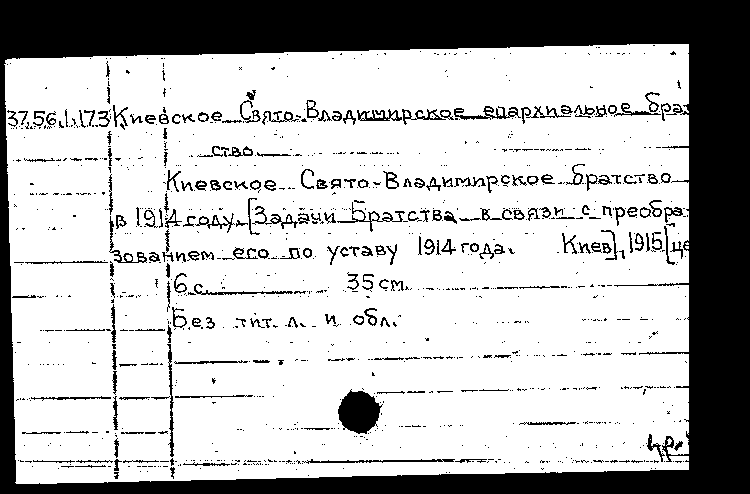 37.56.1.173 Киевское Свято-Владимирское епархиальное брат
ство.
Киевское Свято-Владимирское братство
в 1914 году. [Задачи Братства в связи с преобра-
зованием его по уставу 1914 года. Киев], 1915 [це
6 с. 35 см.
Без тит. л. и обл.